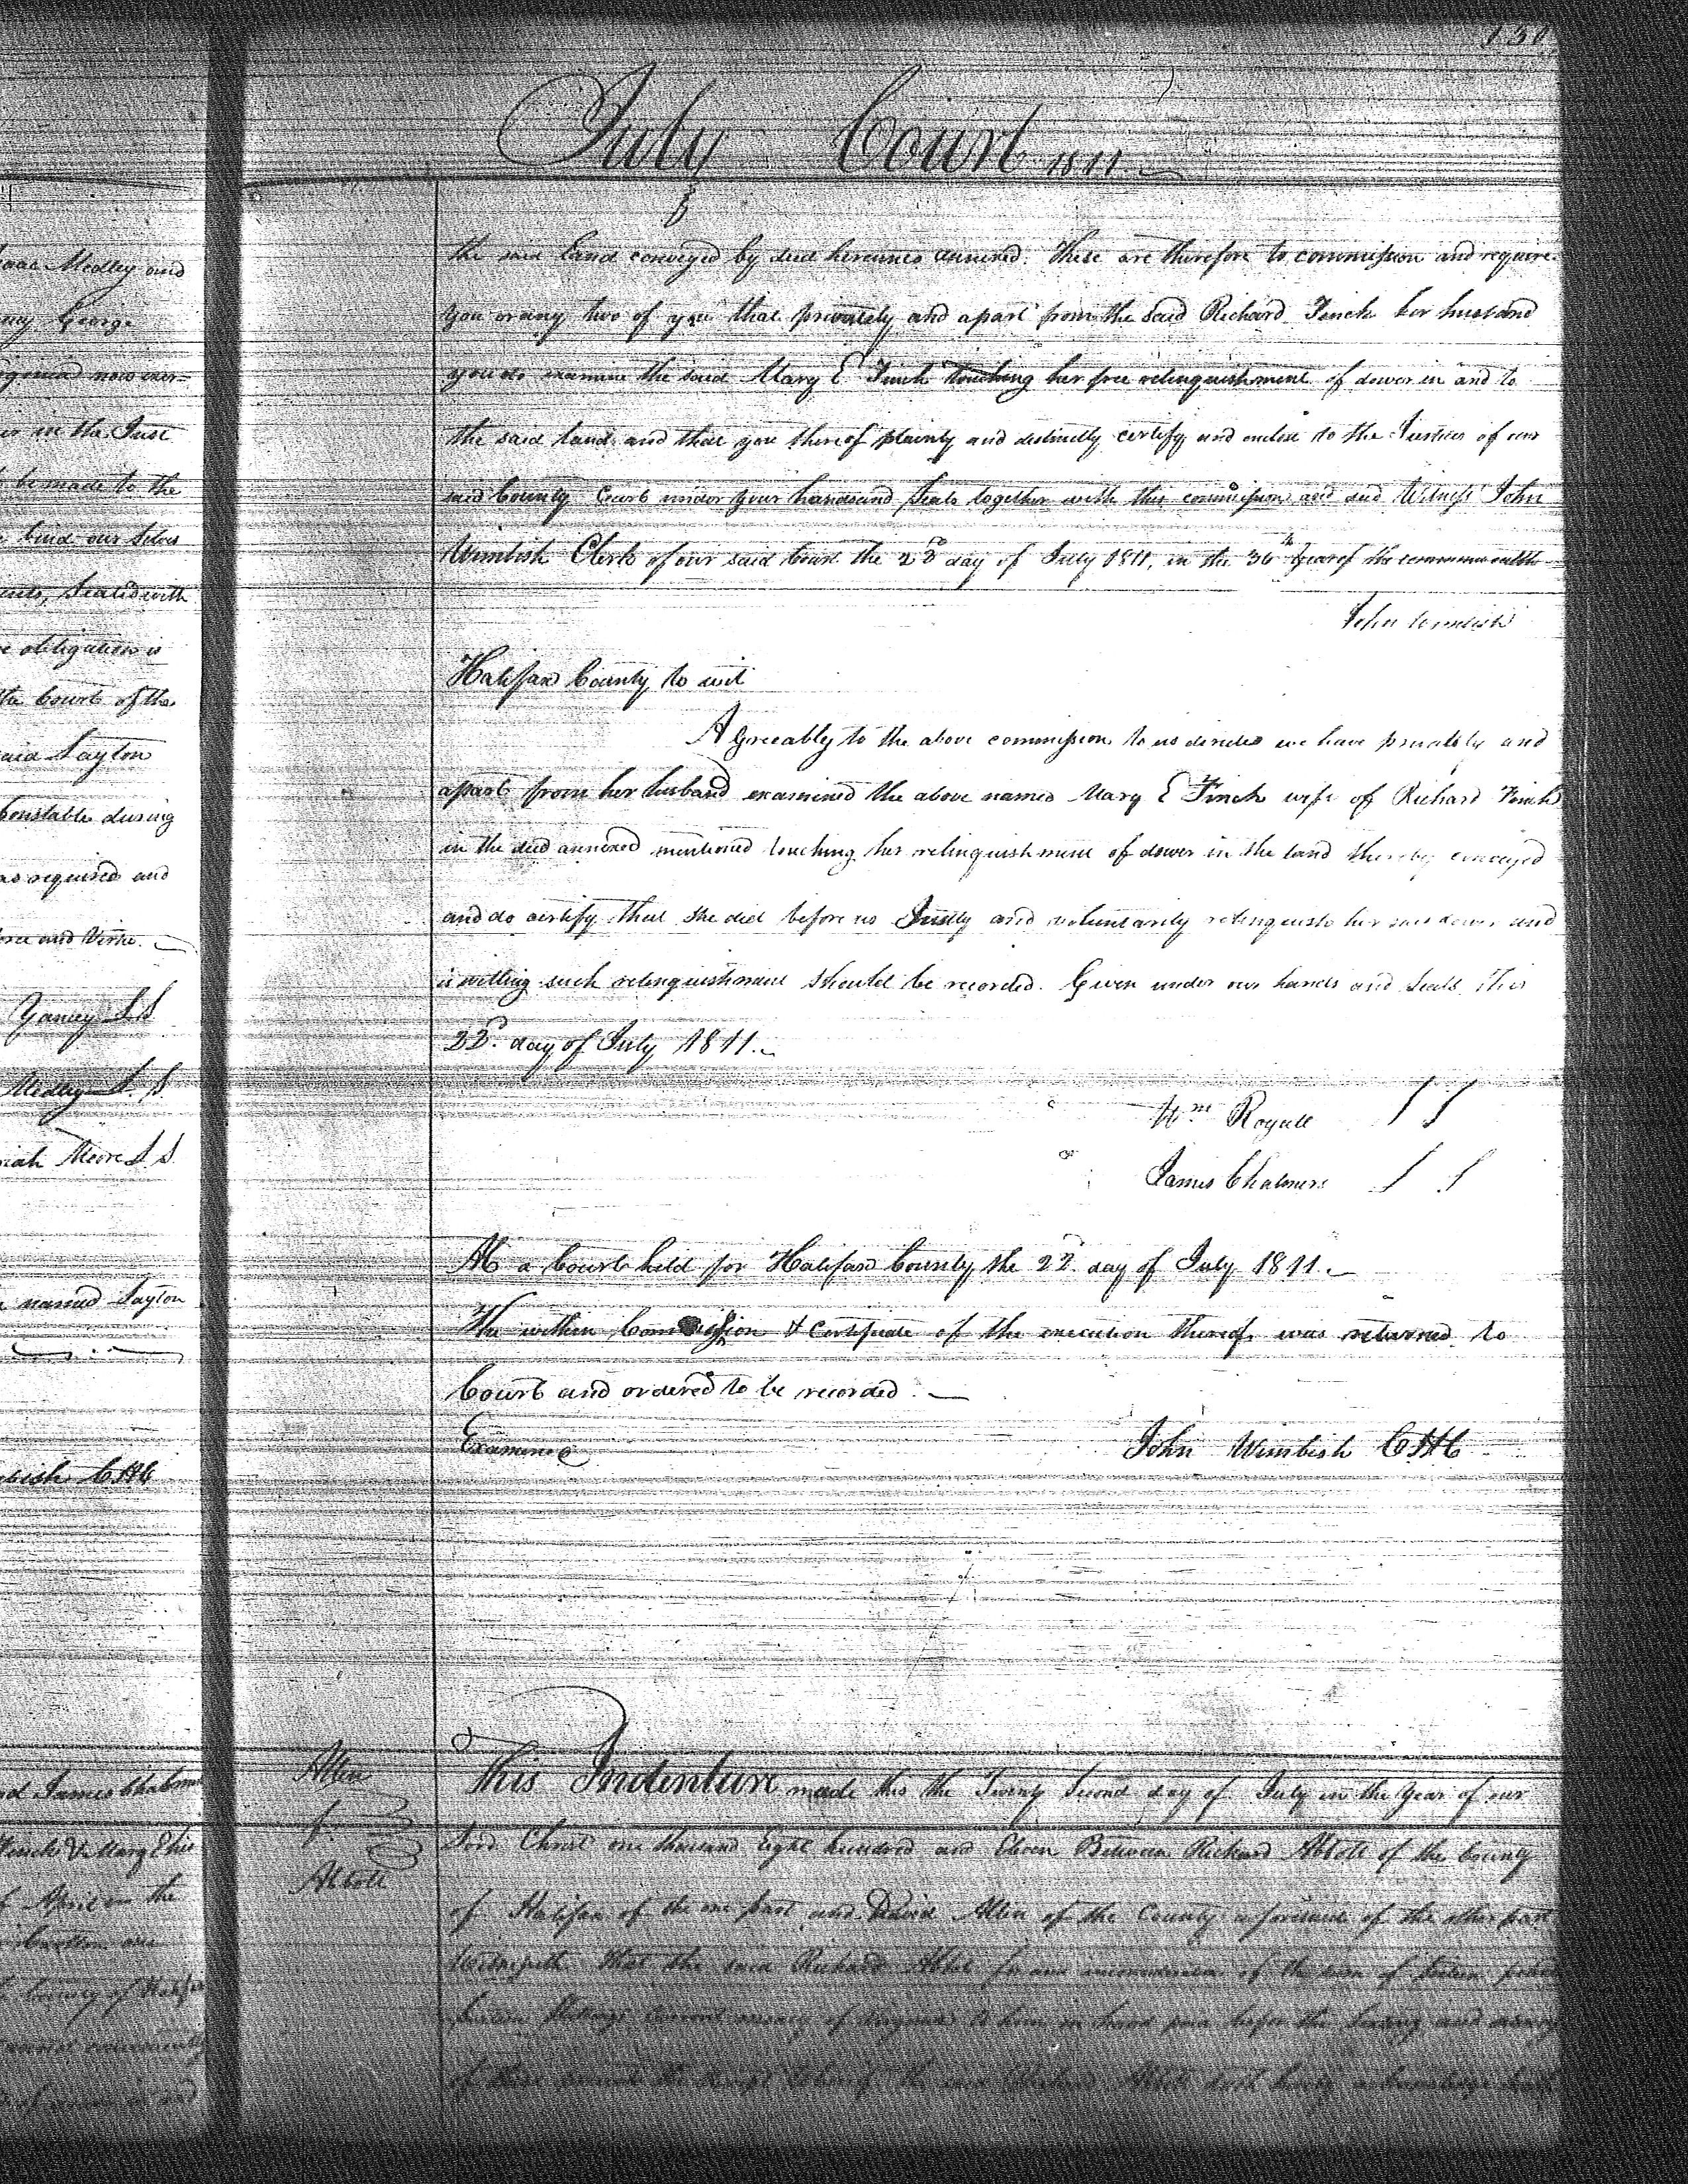 July Court 1811
the said Land conveyed by deed hereunto annexed. These are therefore to commission and require
you or any two of you that privately and apart from the said Richard Finch her husband
you do examine the said Mary E Finch touching her free relinquishment of dower in and to
the said land and that you thereof plainly and distinctly certify and enclose to the Justices of our
said County Court under your hands and Seals together with this commission and deed Witness John
Wimbish Clerk of our said Court the 22d day of July 1811, in the 36th Year of the commonwealth
John Wimbish
Halifax County to wit
Agreeably to the above commission to us directed we have privately and
apart from her husband examined the above named Mary E Finch wife of Richard Finch
in the deed annexed mentioned touching her relinquishment of dower in the land thereby conveyed
and do certify that she did before us and voluntarily relinquish her said dower and
is willing such relinquishment should be recorded. Given under our hands and Seals this
22d. day of July 1811.
Wm Royall L S
James Chalmers L S
At a Court held for Halifax County the 22d. day of July 1811.
The within Commission & Certificate of the execution thereof was returned to
Court and ordered to be recorded.
Examined John Wimbish CHC
Allen
f
Abbott
This Indenture made this the Twenty Second day of July in the Year of our
Lord Christ one thousand Eight hundred and Eleven Between Richard Abbott of the County
of Halifax of the one part and David Allen of the County aforesaid of the other part
Witnesseth that the said Richard Abbott for and in consideration of the sum of
Shillings Current money of Virginia to him in hand paid before the Sealing and
of these the receipt whereof the said Richard Abbott doth hereby acknowledge
Isaac Medley and
George
Virginia now exer=
in the Just
be made to the
bind our Selves
Sealed with
obligation is
the Court of the
said Layton
Constable during
as required and
force and Virtue.
Yancey L S
Medley L. S
Moore L S
named Layton
Wimbish CHC
and James Chalmers
Finch & Mary E his
April in the
County of Halifax
cannot conveniently